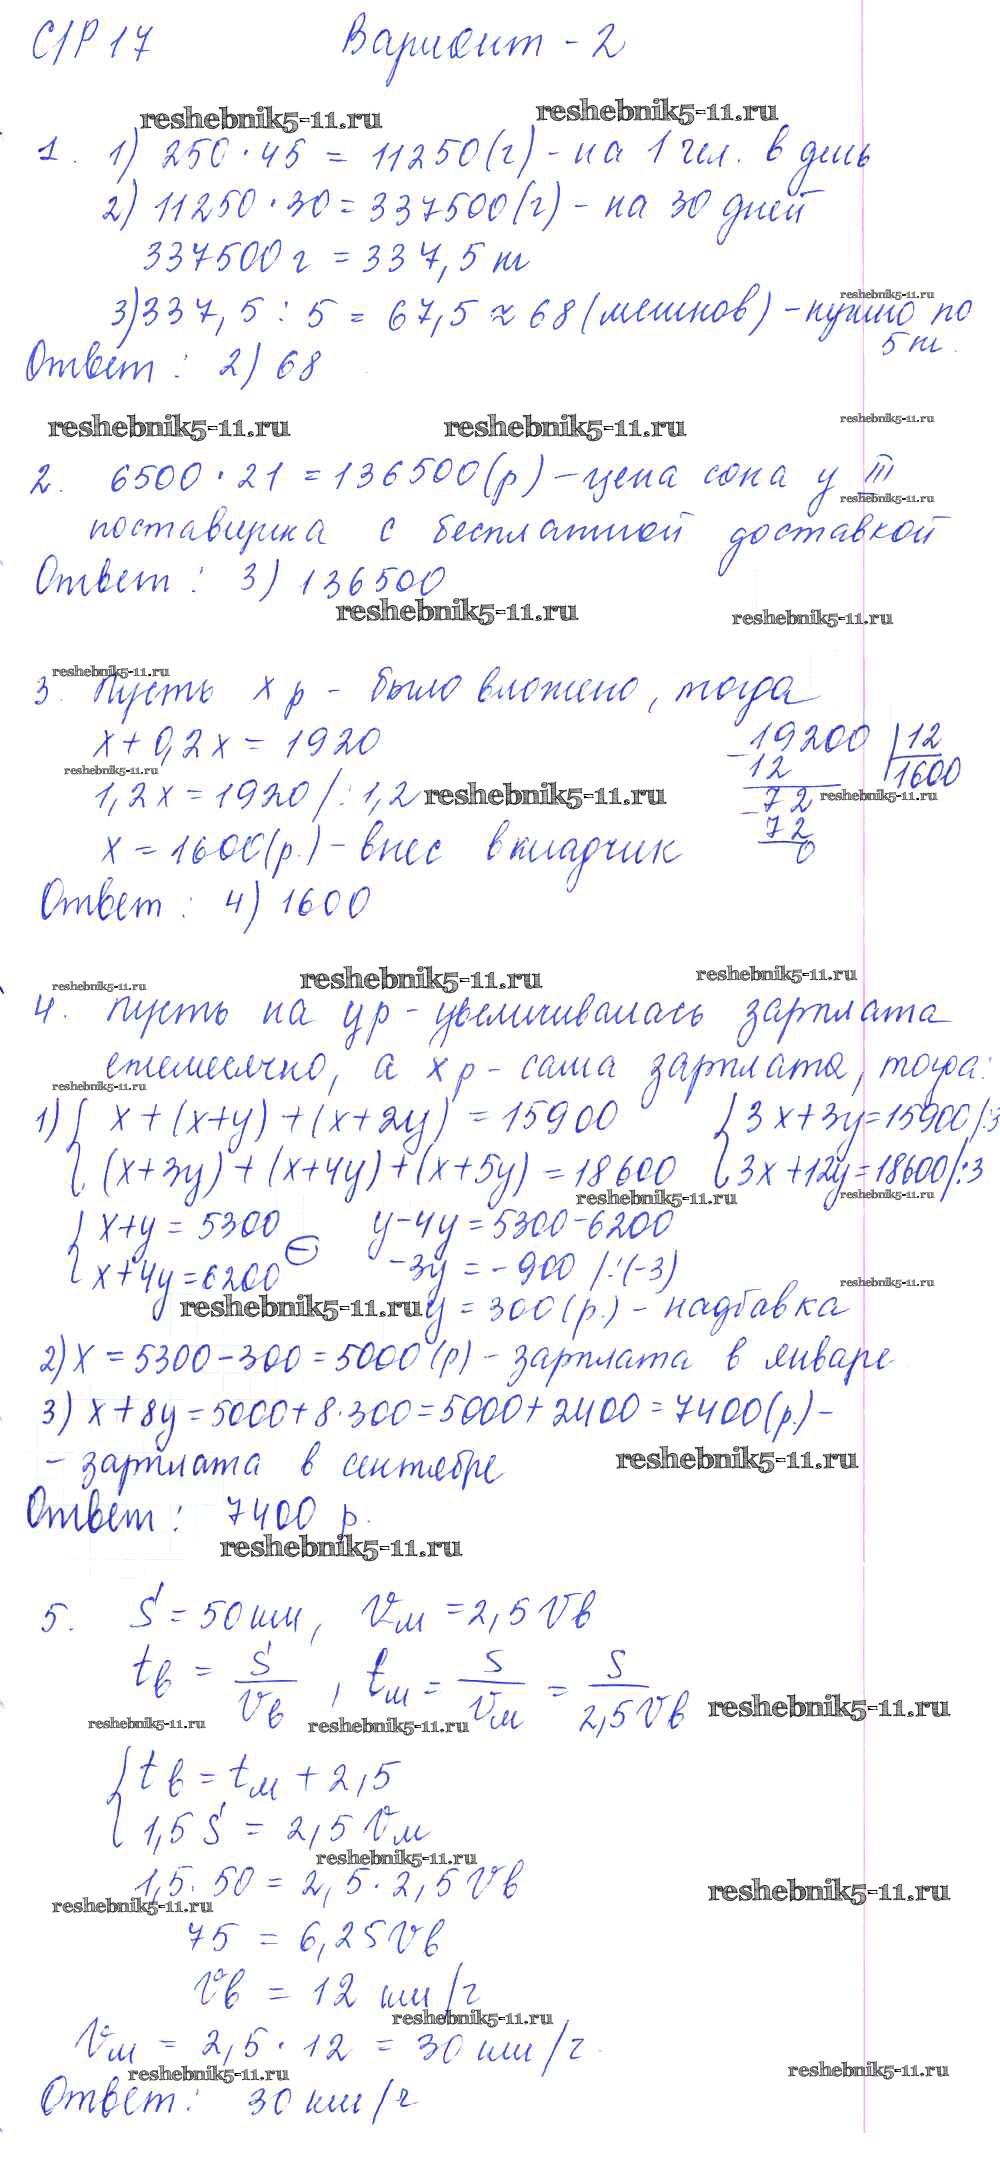 С/Р 17 Вариант - 2
reshebnik5-11.ru reshebnik5-11.ru
1. 1) 250 · 45 = 11250 (г) - на 1 чел. в день
2) 11250 · 30 = 337500 (г) - на 30 дней
337500 г = 337,5 т
reshebnik5-11.ru
3) 337,5 : 5 = 67,5 ≈ 68 (мешков) - нужно по
5 т.
Ответ: 2) 68
reshebnik5-11.ru reshebnik5-11.ru reshebnik5-11.ru
2. 6500 · 21 = 136500 (р) - цена сока у III
reshebnik5-11.ru
поставщика с бесплатной доставкой
Ответ: 3) 136500
reshebnik5-11.ru reshebnik5-11.ru
reshebnik5-11.ru
3. Пусть x р - было вложено, тогда
x + 0,2x = 1920
19200 | 12
reshebnik5-11.ru
12 1600
1,2x = 1920 /: 1,2 reshebnik5-11.ru
- 72 reshebnik5-11.ru
72
x = 1600 (р.) - внес вкладчик
0
Ответ: 4) 1600
reshebnik5-11.ru reshebnik5-11.ru reshebnik5-11.ru
4. Пусть на y р - увеличивалась зарплата
ежемесячно, а x р - сама зарплата, тогда:
reshebnik5-11.ru
1) { x + (x+y) + (x+2y) = 15900 { 3x + 3y = 15900 /:3
(x+3y) + (x+4y) + (x+5y) = 18600 3x + 12y = 18600 /:3
reshebnik5-11.ru reshebnik5-11.ru
{ x+y = 5300 y - 4y = 5300 - 6200
x+4y = 6200 (-) -3y = -900 /:(-3)
reshebnik5-11.ru
reshebnik5-11.ru y = 300 (р.) - надбавка
2) x = 5300 - 300 = 5000 (р) - зарплата в январе
3) x + 8y = 5000 + 8·300 = 5000 + 2400 = 7400 (р.) -
- зарплата в сентябре reshebnik5-11.ru
Ответ: 7400 р.
reshebnik5-11.ru
5. S = 50 км, Vм = 2,5 Vв
tв = S/Vв , tм = S/Vм = S/2,5Vв reshebnik5-11.ru
reshebnik5-11.ru reshebnik5-11.ru
{ tв = tм + 2,5
1,5 S = 2,5 Vм
reshebnik5-11.ru
1,5 · 50 = 2,5 · 2,5 Vв reshebnik5-11.ru
reshebnik5-11.ru
75 = 6,25 Vв
Vв = 12 км/ч
reshebnik5-11.ru
Vм = 2,5 · 12 = 30 км/ч.
reshebnik5-11.ru reshebnik5-11.ru
Ответ: 30 км/ч